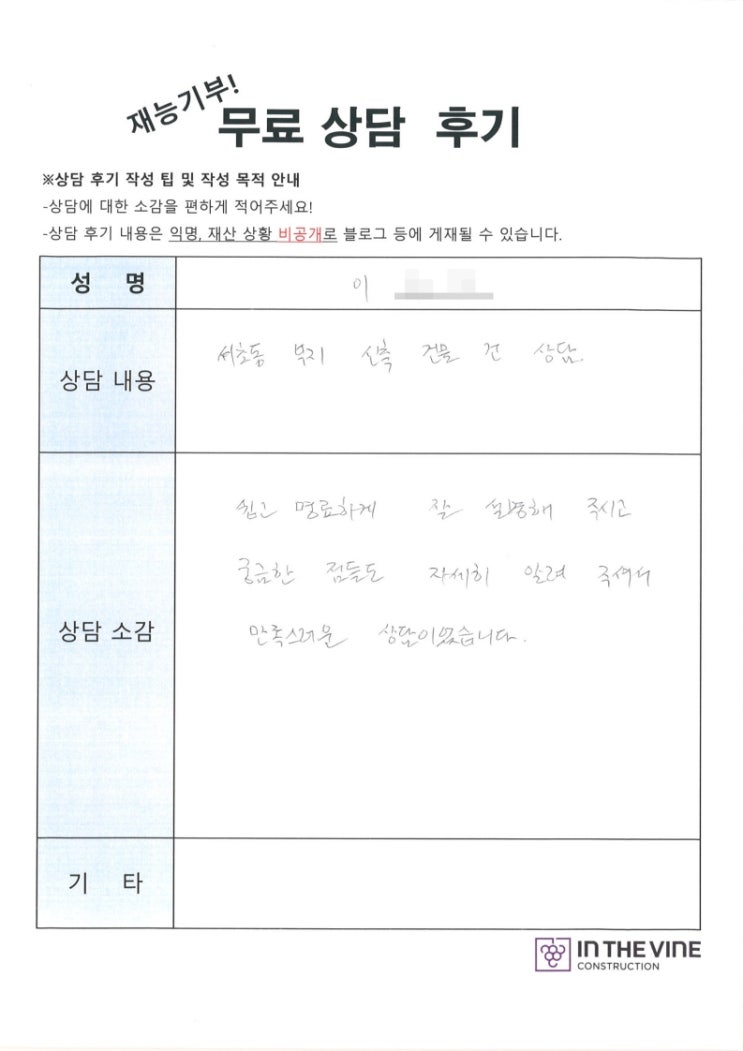 재능기부!
무료 상담 후기
※상담 후기 작성 팁 및 작성 목적 안내
-상담에 대한 소감을 편하게 적어주세요!
-상담 후기 내용은 익명, 재산 상황 비공개로 블로그 등에 게재될 수 있습니다.
성 명
이
상담 내용
서초동 부지 신축 건물 건 상담.
상담 소감
쉽고 명료하게 잘 설명해 주시고
궁금한 점들도 자세히 알려 주셔서
만족스러운 상담이었습니다.
기 타
IN THE VINE
CONSTRUCTION